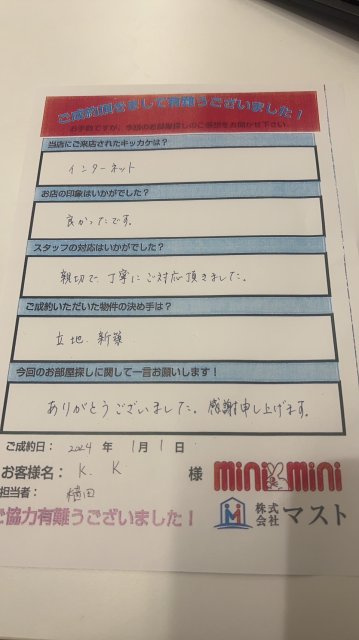 ご成約頂きまして有難うございました！
お手数ですが、今回のお部屋探しのご感想をお聞かせ下さい。
当店にご来店されたキッカケは？
インターネット
お店の印象はいかがでした？
良かったです。
スタッフの対応はいかがでした？
親切で、丁寧にご対応頂きました。
ご成約いただいた物件の決め手は？
立地、新築
今回のお部屋探しに関して一言お願いします！
ありがとうございました。感謝申し上げます。
ご成約日： 2024 年 1月 1日
お客様名： K. K 様
minimini
担当者： 横田
株式会社マスト
ご協力有難うございました！